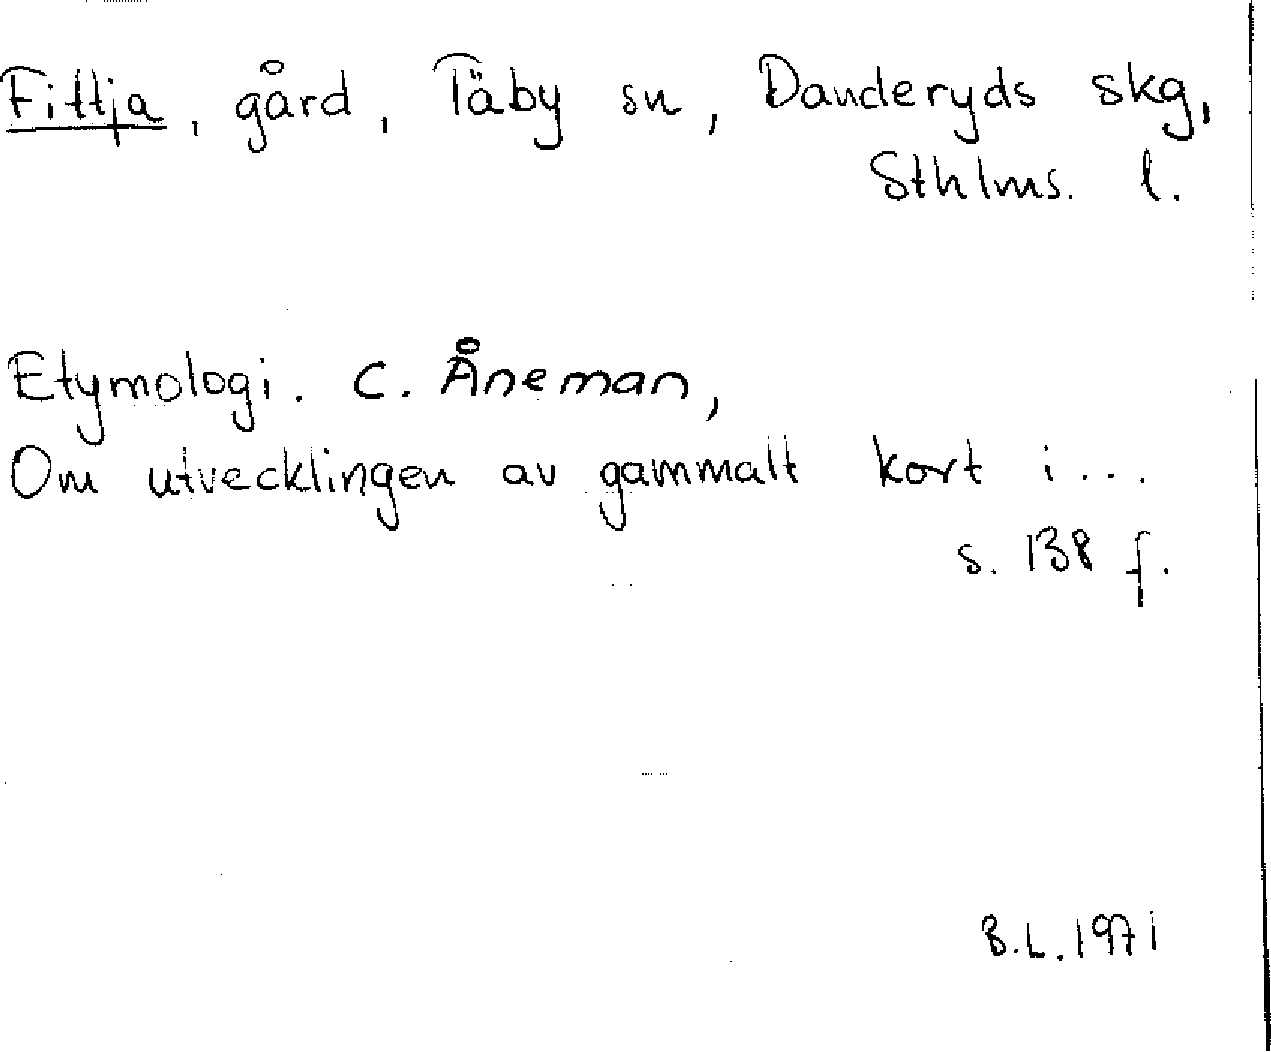 Fittja, gård, Täby sn, Danderyds skg,
Sthlms. l.
Etymologi. C. Åneman,
Om utvecklingen av gammalt kort i...
s. 138 f.
B.L. 1971